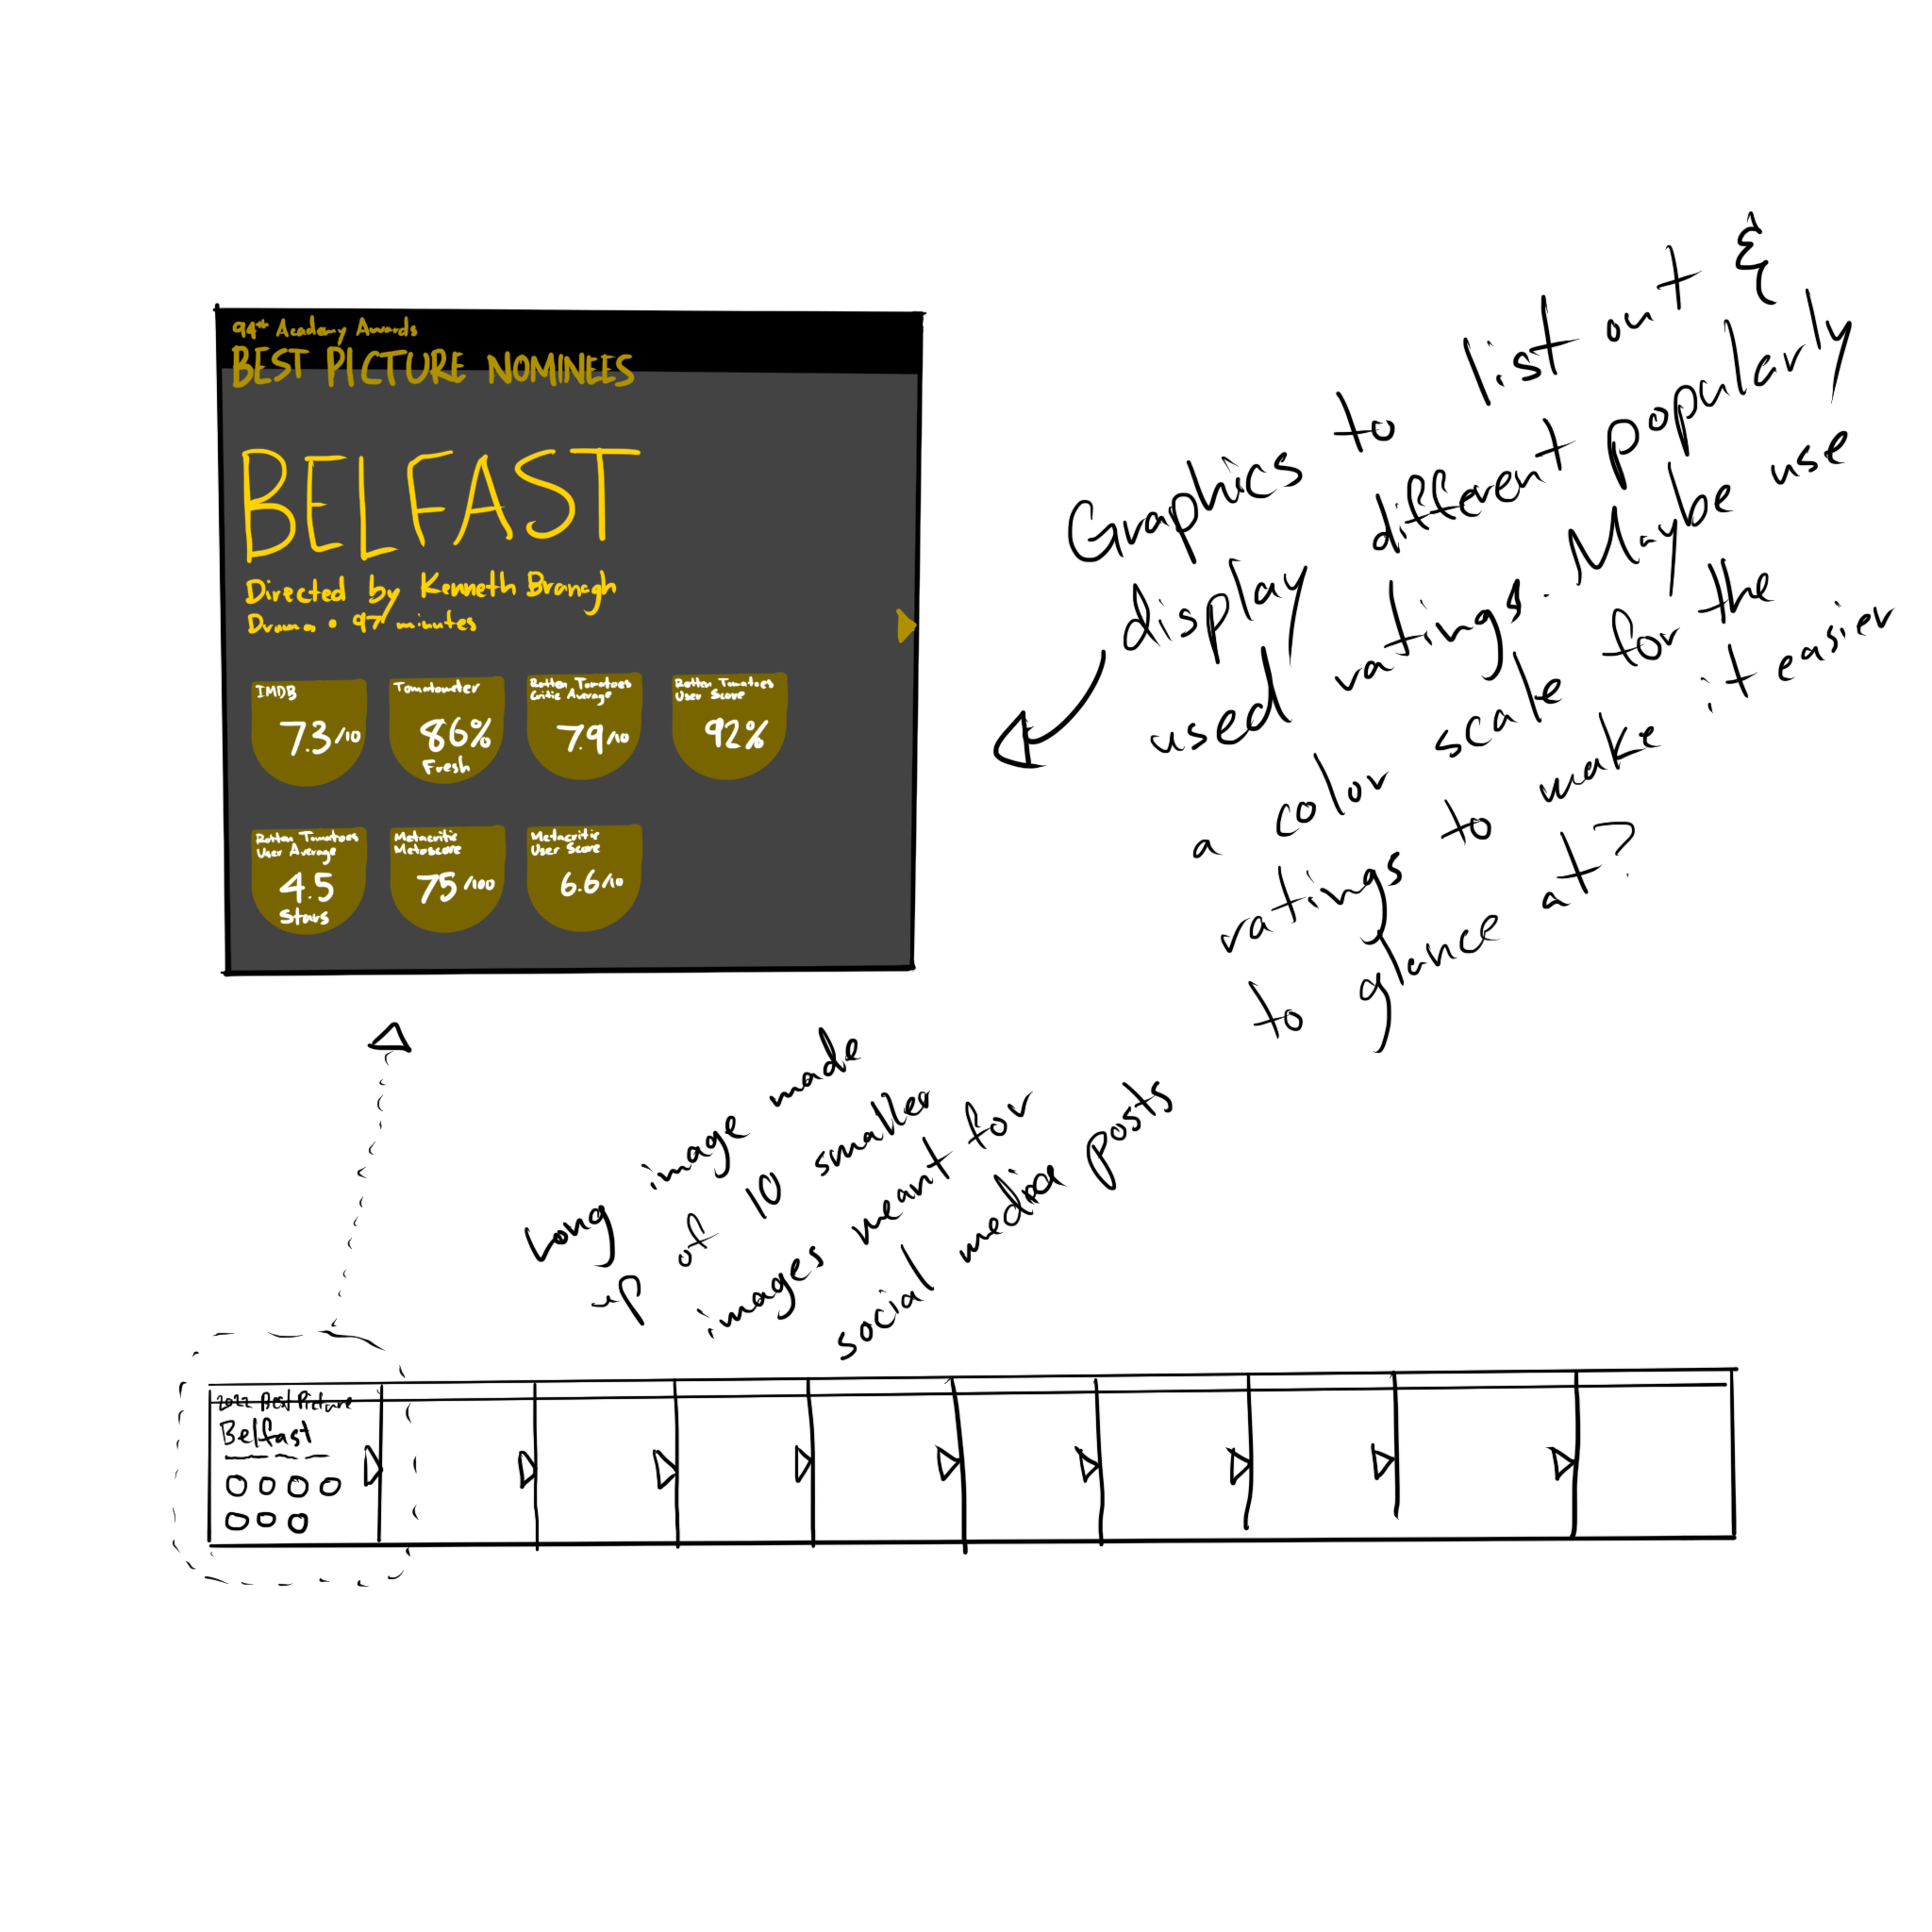 94th Academy Awards
BEST PICTURE NOMINEES
BELFAST
Directed by Kenneth Branagh
Drama • 97 minutes
IMDB
7.3/10
Tomatometer
86%
Fresh
Rotten Tomatoes
Critic Average
7.9/10
Rotten Tomatoes
User Score
92%
Rotten Tomatoes
User Average
4.5
Stars
Metacritic
Metascore
75/100
Metacritic
User Score
6.6/10
Graphics to list out &
display different popularly
used ratings. Maybe use
a color scale for the
ratings to make it easier
to glance at?
Long image made
up of 10 smaller
images meant for
social media posts
2022 Best Picture
Belfast